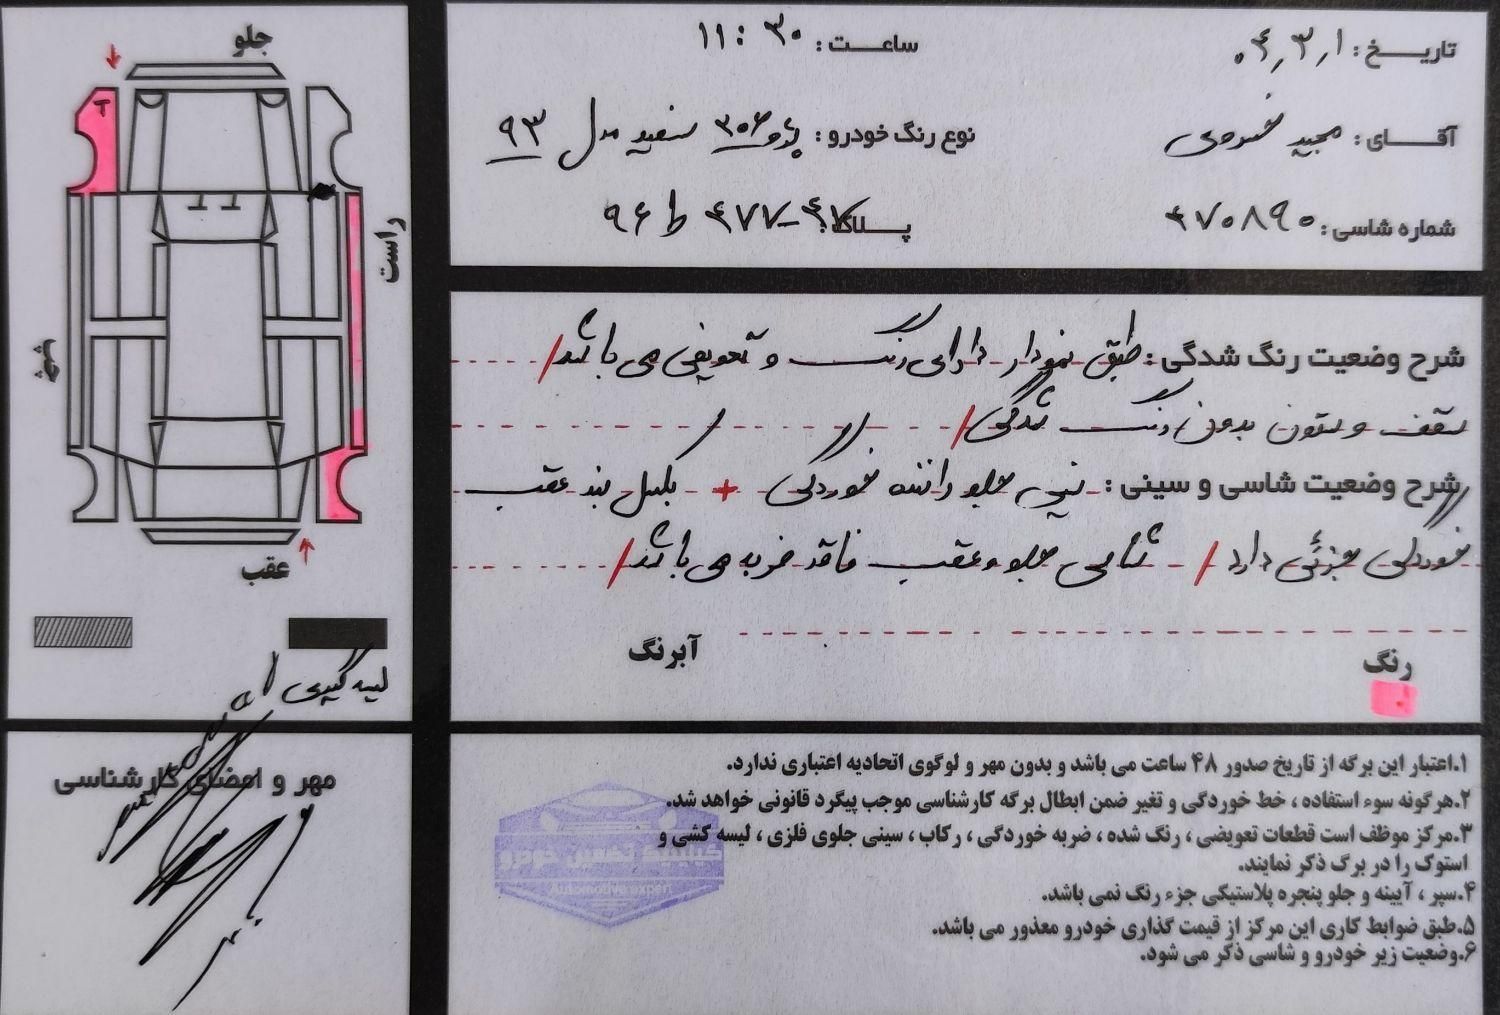 تاریخ: ۰۴,۳,۱
ساعت: ۱۱:۳۰
آقای: مجید
نوع رنگ خودرو: پژو ۲۰۶ سفید مدل ۹۳
شماره شاسی: ۴۷۰۸۹۰
پلاک: ۴۷۷ ط ۹۶
شرح وضعیت رنگ شدگی: طبق نمودار دارای رنگ و تعویض می باشد/
سقف و ستون بدون رنگ شدگی/
شرح وضعیت شاسی و سینی: جلو راننده خوردگی + بند عقب
خوردگی جزئی دارد / شاسی جلو و عقب فاقد ضربه می باشد/
رنگ
آبرنگ
جلو
T
راست
عقب
لیسه گیری
مهر و امضای کارشناسی
۱.اعتبار این برگه از تاریخ صدور ۴۸ ساعت می باشد و بدون مهر و لوگوی اتحادیه اعتباری ندارد.
۲.هرگونه سوء استفاده ، خط خوردگی و تغیر ضمن ابطال برگه کارشناسی موجب پیگرد قانونی خواهد شد.
۳.مرکز موظف است قطعات تعویضی ، رنگ شده ، ضربه خوردگی ، رکاب ، سینی جلوی فلزی ، لیسه کشی و
استوک را در برگ ذکر نمایند.
۴.سپر ، آیینه و جلو پنجره پلاستیکی جزء رنگ نمی باشد.
۵.طبق ضوابط کاری این مرکز از قیمت گذاری خودرو معذور می باشد.
۶.وضعیت زیر خودرو و شاسی ذکر می شود.
کیلینیک تخصصی خودرو
Automotive expert